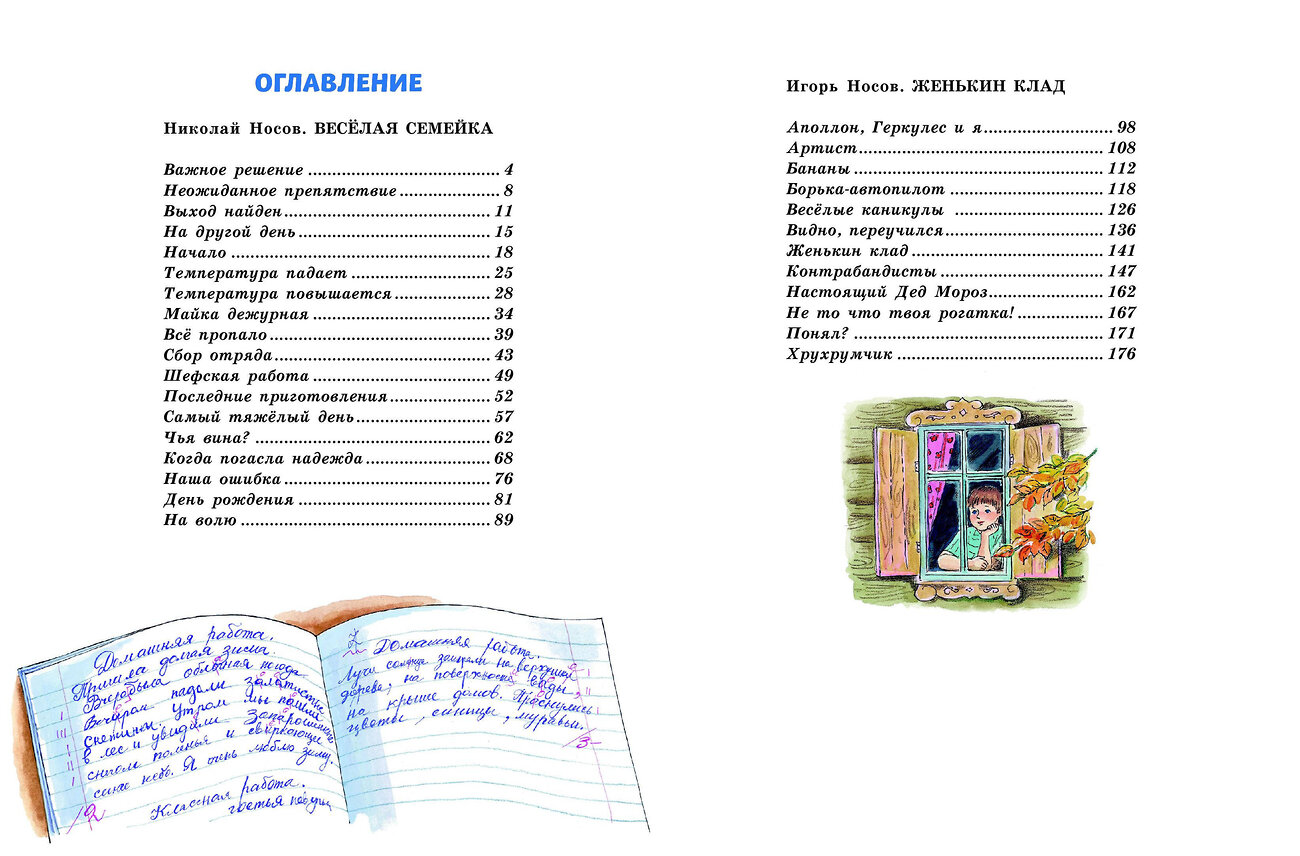 ОГЛАВЛЕНИЕ
Николай Носов. ВЕСЁЛАЯ СЕМЕЙКА
Важное решение ........ 4
Неожиданное препятствие ........ 8
Выход найден ........ 11
На другой день ........ 15
Начало ........ 18
Температура падает ........ 25
Температура повышается ........ 28
Майка дежурная ........ 34
Всё пропало ........ 39
Сбор отряда ........ 43
Шефская работа ........ 49
Последние приготовления ........ 52
Самый тяжёлый день ........ 57
Чья вина? ........ 62
Когда погасла надежда ........ 68
Наша ошибка ........ 76
День рождения ........ 81
На волю ........ 89
Игорь Носов. ЖЕНЬКИН КЛАД
Аполлон, Геркулес и я ........ 98
Артист ........ 108
Бананы ........ 112
Борька-автопилот ........ 118
Весёлые каникулы ........ 126
Видно, переучился ........ 136
Женькин клад ........ 141
Контрабандисты ........ 147
Настоящий Дед Мороз ........ 162
Не то что твоя рогатка! ........ 167
Понял? ........ 171
Хрухрумчик ........ 176
Домашняя работа.
Пришла долгая зима.
Вчера была облочная погода
Вечером падали
снежины. Утром мы пошли
в лес и увидили Запорошиные
снегом полянья и
сине небо. Я очень люблю зиму.
2
Классная работа.
Домашняя работа.
Лучи солнца заиграли на верхушкой
дерева, на поверхности выды,
на крыше домов. Проснулись
цветы, синицы, муравьи.
3-